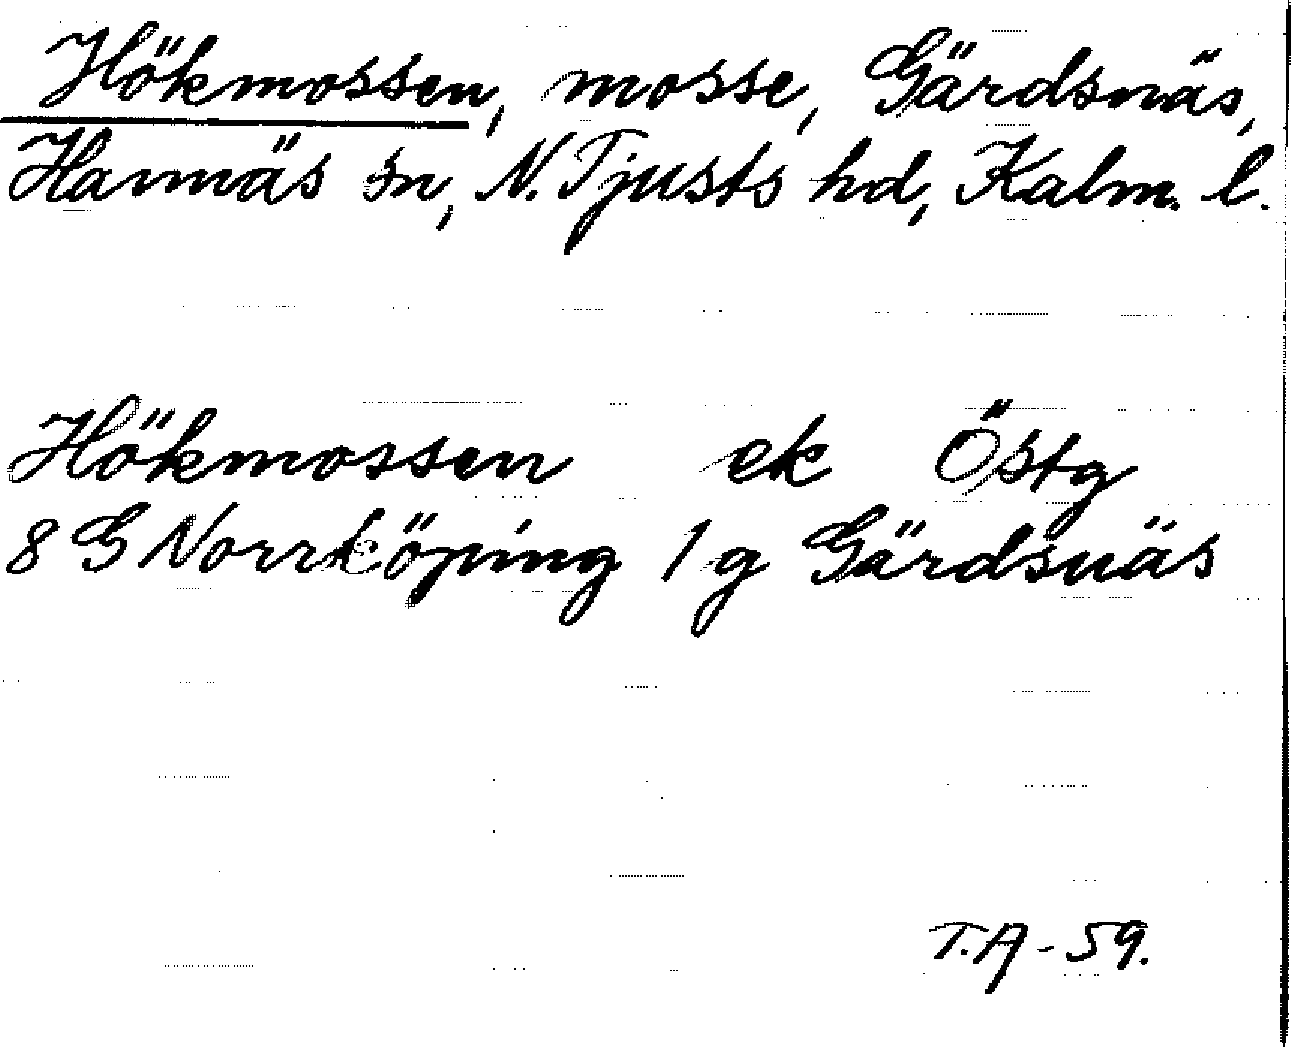 Hökmossen, mosse, Gärdsnäs,
Hannäs sn, N. Tjusts hd, Kalm. l.
Hökmossen ek Östg
8 G Norrköping 1 g Gärdsnäs
T.A - 59.